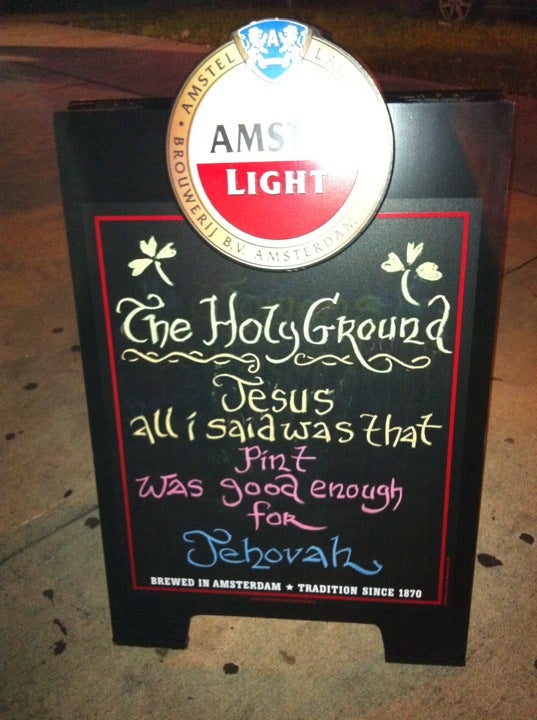 AMSTEL LAGER
AMS
LIGHT
BROUWERIJ B.V. AMSTERDAM
The Holy Ground
Jesus
all i said was that
Pint
was good enough
for
Jehovah
BREWED IN AMSTERDAM ★ TRADITION SINCE 1870